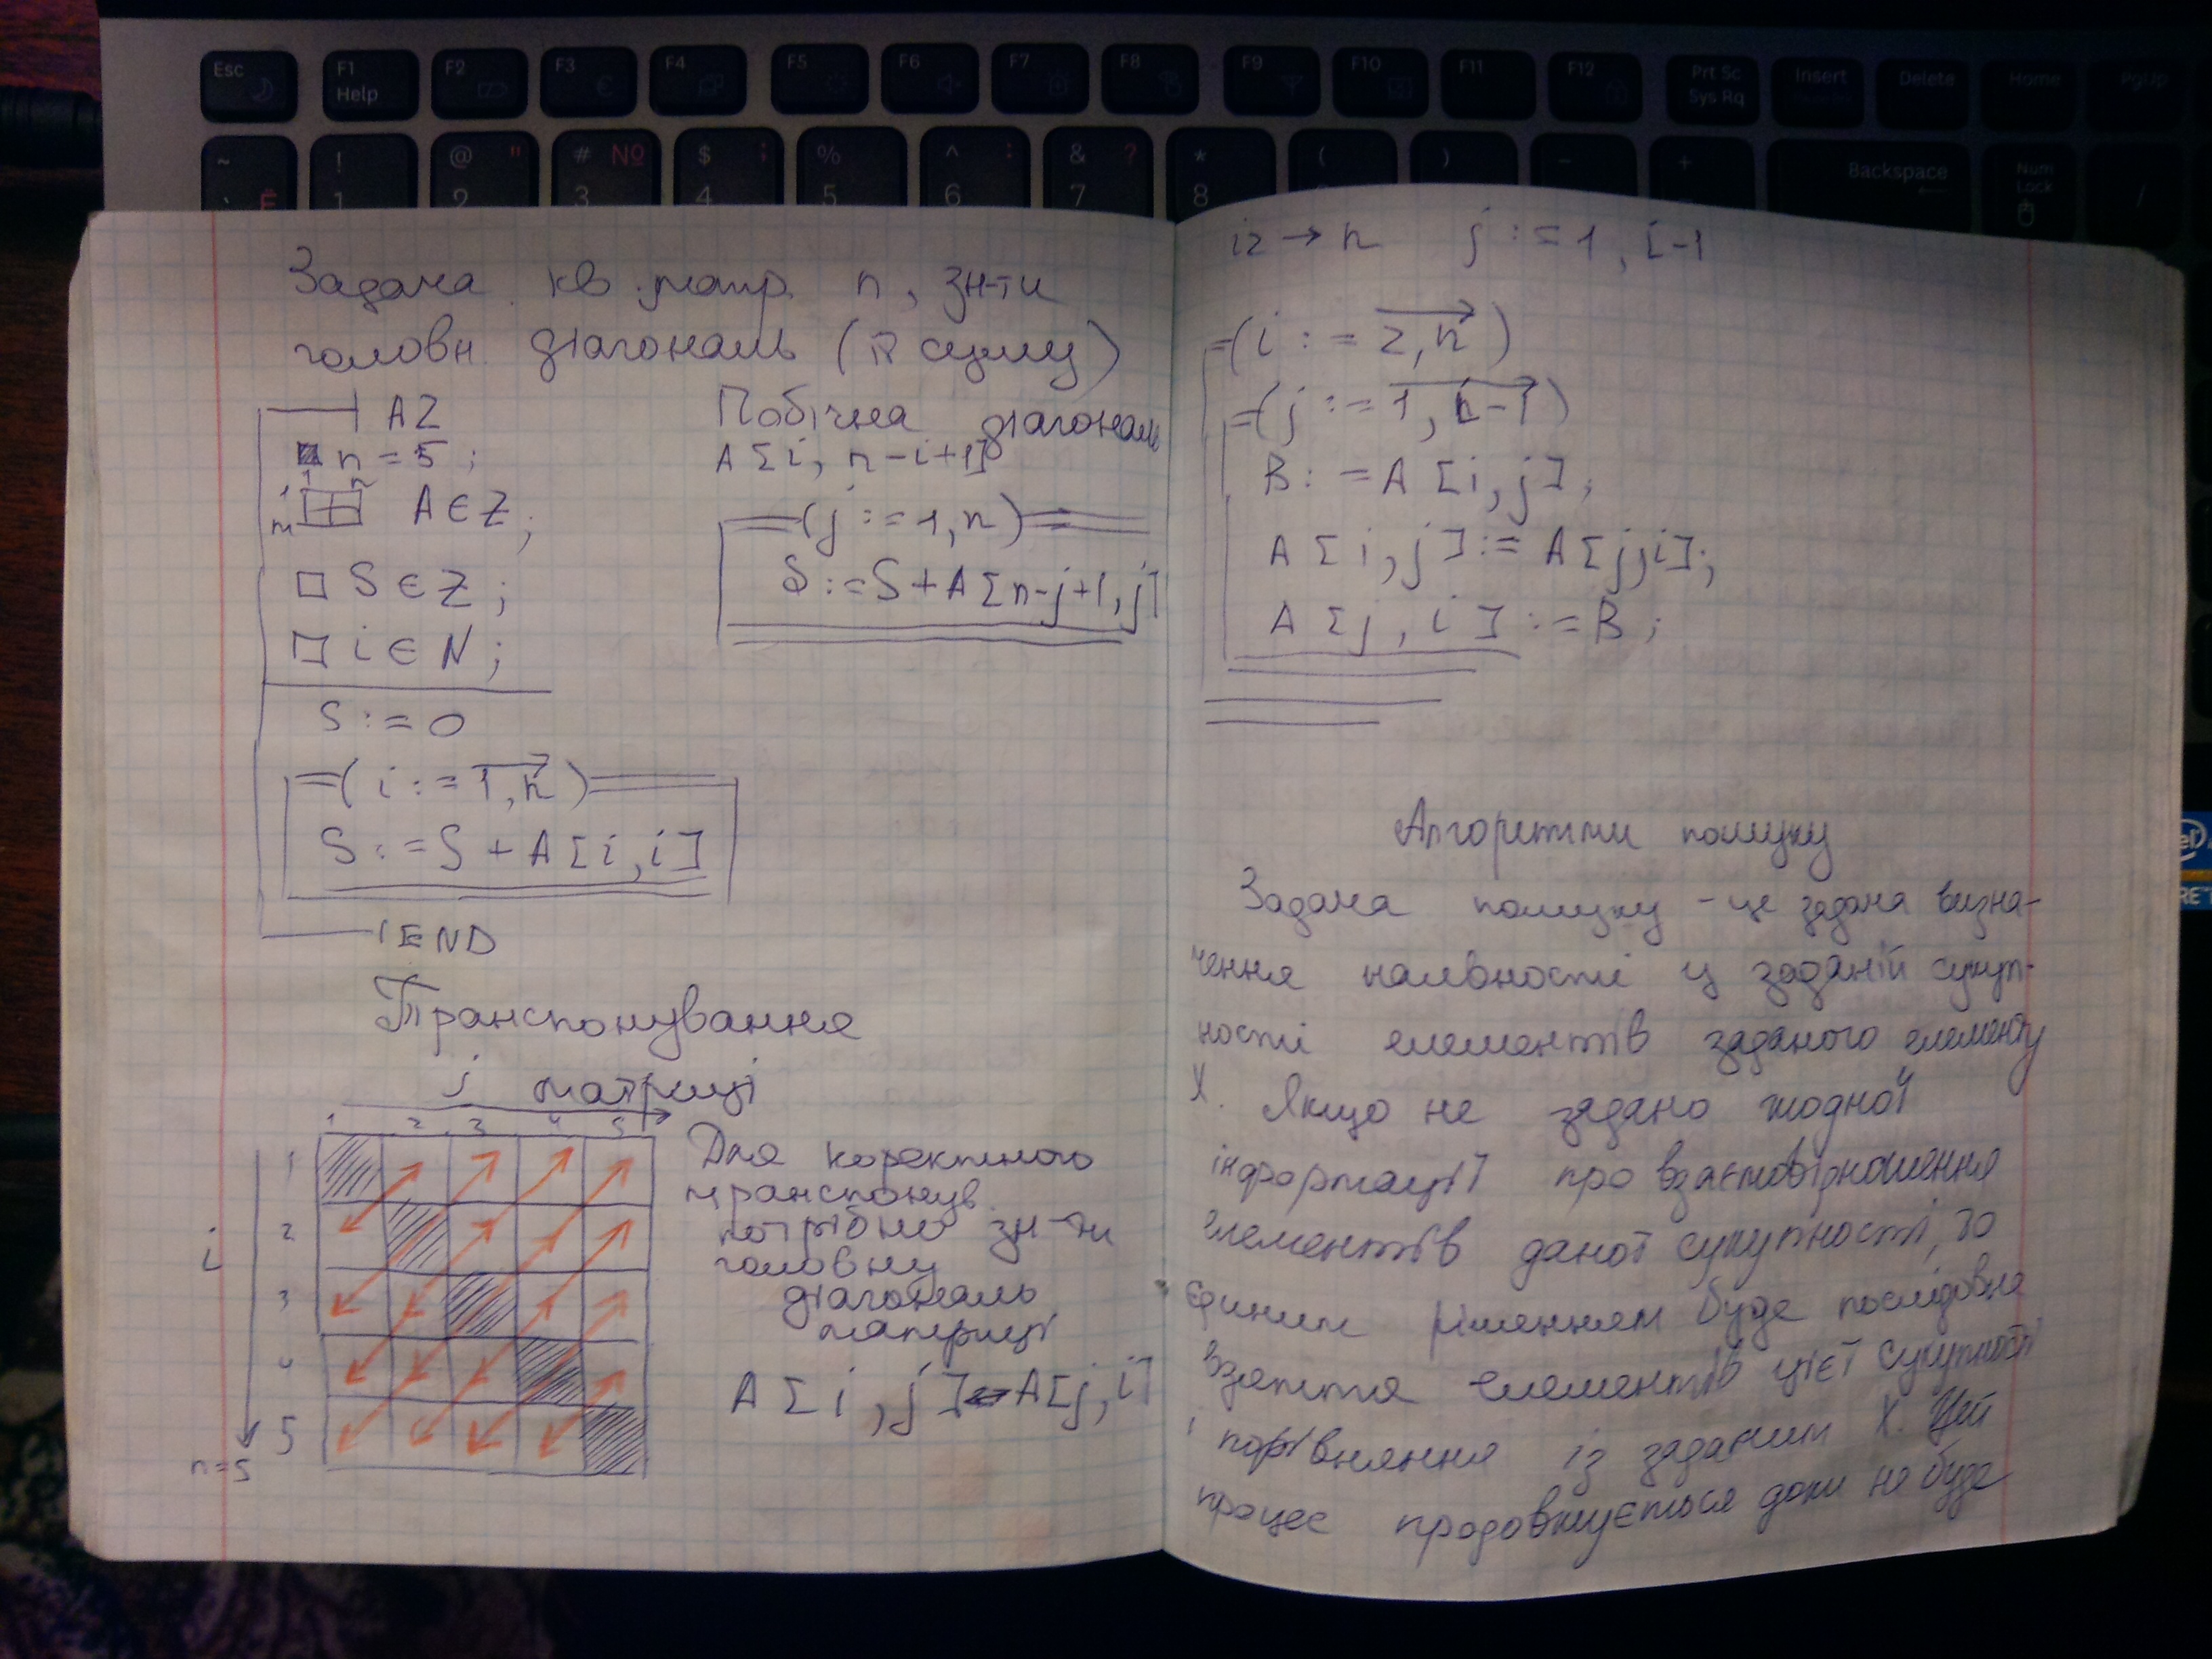 Esc F1 F2 F3 F4 F5 F6 F7 F8 F9 F10 F11 F12 Prt Sc Insert Delete Home PgUp
Help Sys Rq
~ ! @ " # № $ ; % ^ : & ? * ( ) – + Backspace Num
` Ё 1 2 3 4 5 6 7 8 Lock /
Задача кв. матр. n, зн-ти
головн. діагональ (її суму)
AZ
n = 5 ;
1 n
1 m A ∈ Z ;
□ S ∈ Z ;
□ i ∈ N ;
S := 0
( i := 1, n )
S := S + A [ i , i ]
END
Побічна діагональ
A [ i, n-i+1]
( j := 1, n )
S := S + A [ n-j+1, j ]
Транспонування
матриці
j
1 2 3 4 5
i
1
2
3
4
5
n=5
Для коректного
транспонув.
потрібно зн-ти
головну
діагональ
матриці
A [ i , j ] ↔ A[ j, i ]
i2 → n j := 1, i-1
( i := 2, n )
( j := 1, i-1 )
B := A [ i, j ] ;
A [ i, j ] := A [ j, i ] ;
A [ j, i ] := B ;
Алгоритми пошуку
Задача пошуку – це задача визна-
чення наявності у заданій сукуп-
ності елементів заданого елементу
X. Якщо не задано жодної
інформації про взаємовідношення
елементів даної сукупності, то
єдиним рішенням буде послідовне
взяття елементів цієї сукупності
і порівняння із заданим X. Цей
процес продовжується доки не буде